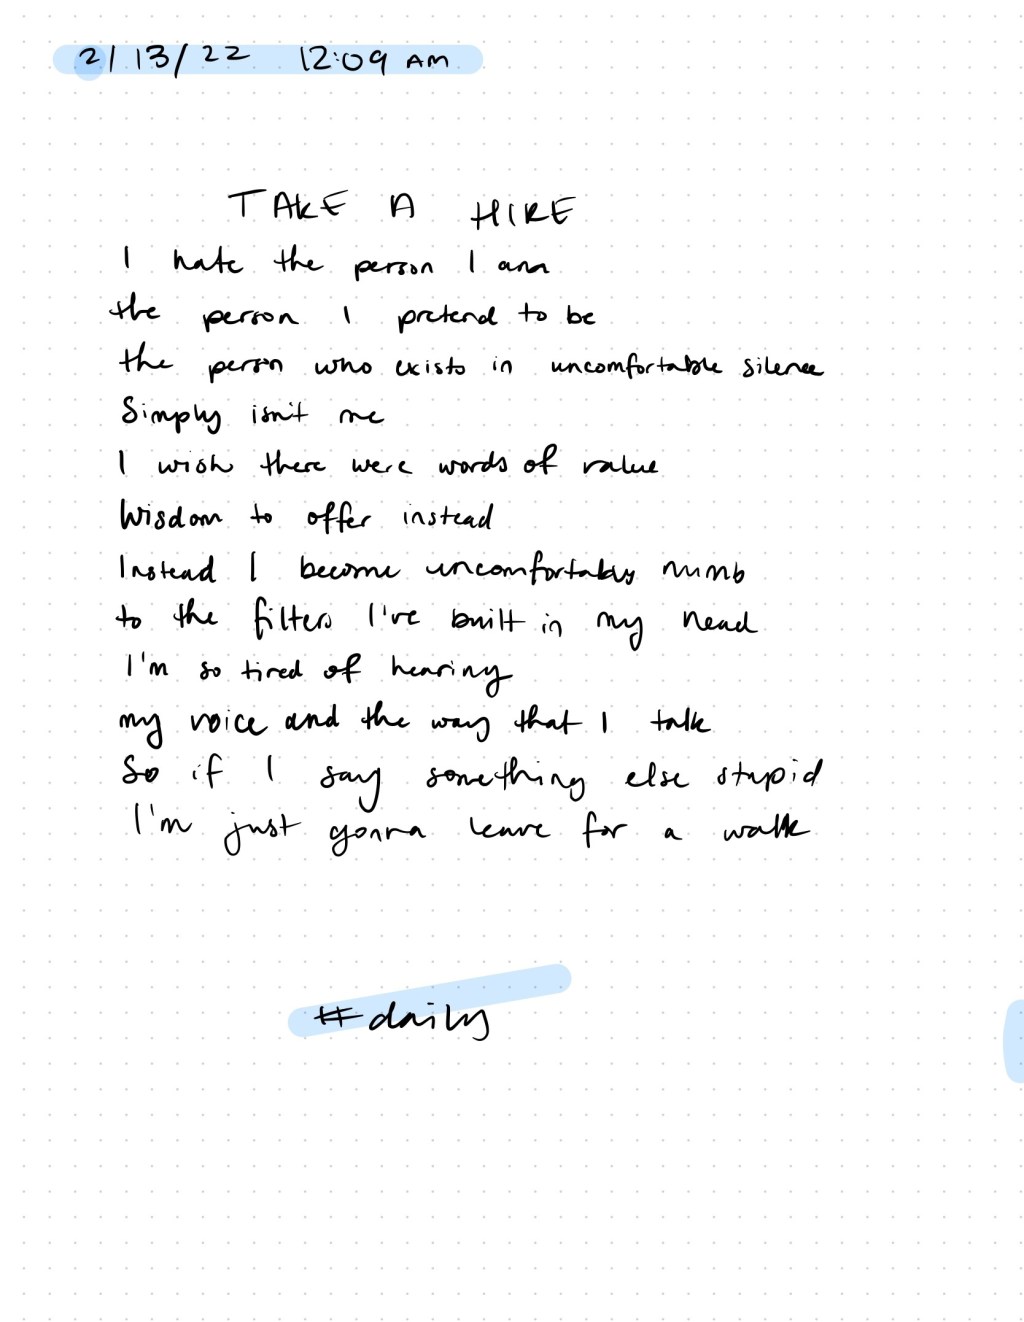 2/13/22 12:09 AM
TAKE A HIKE
I hate the person I am
the person I pretend to be
the person who exists in uncomfortable silence
Simply isn't me
I wish there were words of value
Wisdom to offer instead
Instead I become uncomfortably numb
to the filters I've built in my head
I'm so tired of hearing
my voice and the way that I talk
So if I say something else stupid
I'm just gonna leave for a walk
#daily